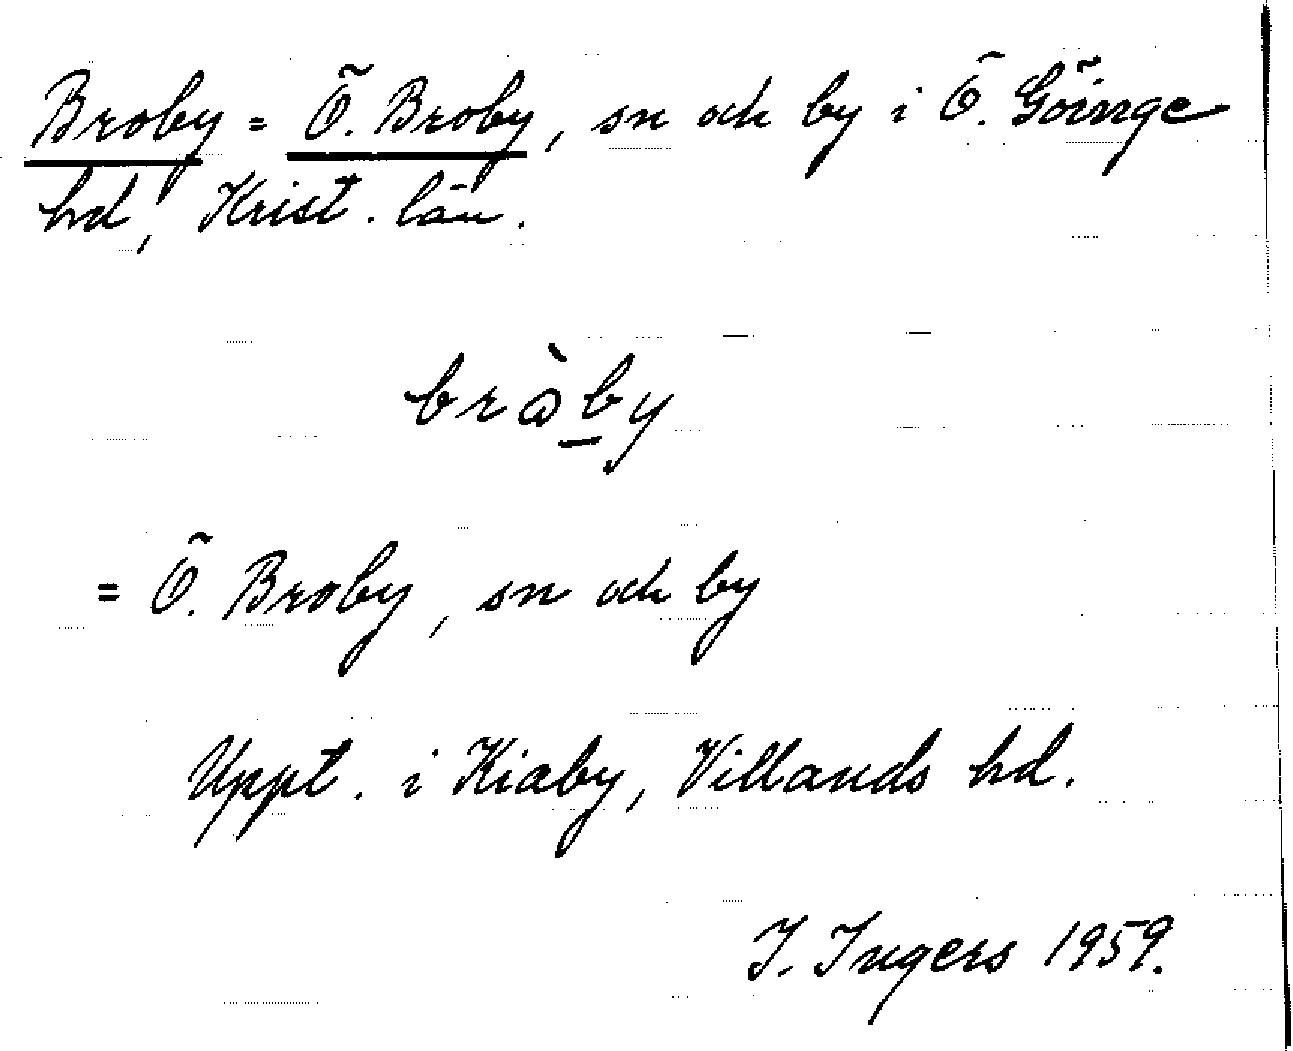 Broby = Ö. Broby, sn och by i Ö. Göinge
hd, Krist. län.
bròby
= Ö. Broby, sn och by
Uppt. i Kiaby, Villands hd.
I. Ingers 1959.